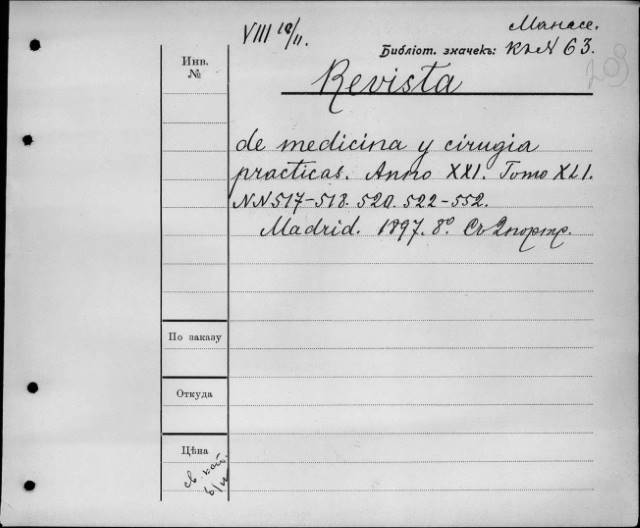 Манасе.
VIII 10/11.
Библіот. значекъ: К2N 63.
209
Инв.
№
Revista
de medicina y cirugia
practicas. Anno XXI. Tomo XLI.
NN 517-518. 520. 522-552.
Madrid. 1897. 8º. Съ 2 портр.
По заказу
Откуда
Цѣна